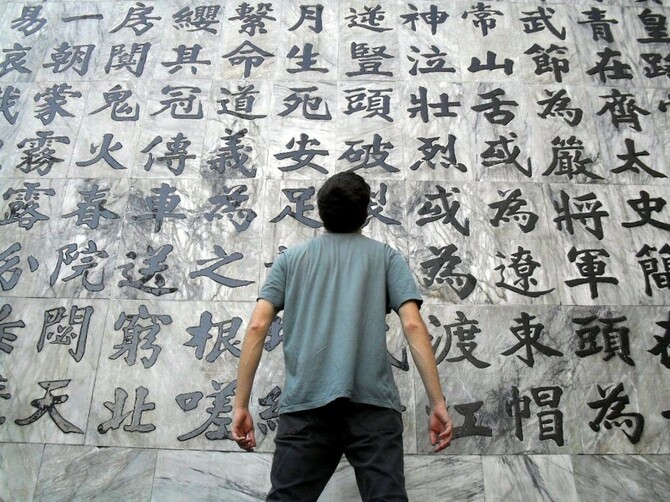 皇路
青在齊太史簡
武節為嚴將軍頭為
常山舌或為遼東帽
神泣壯烈或為渡江
逆豎頭破裂
月生死安足
繫命道義為之根嗟
纓其冠傳車送窮北
房闐鬼火春院閟天
一朝蒙霧露分
易哀哉